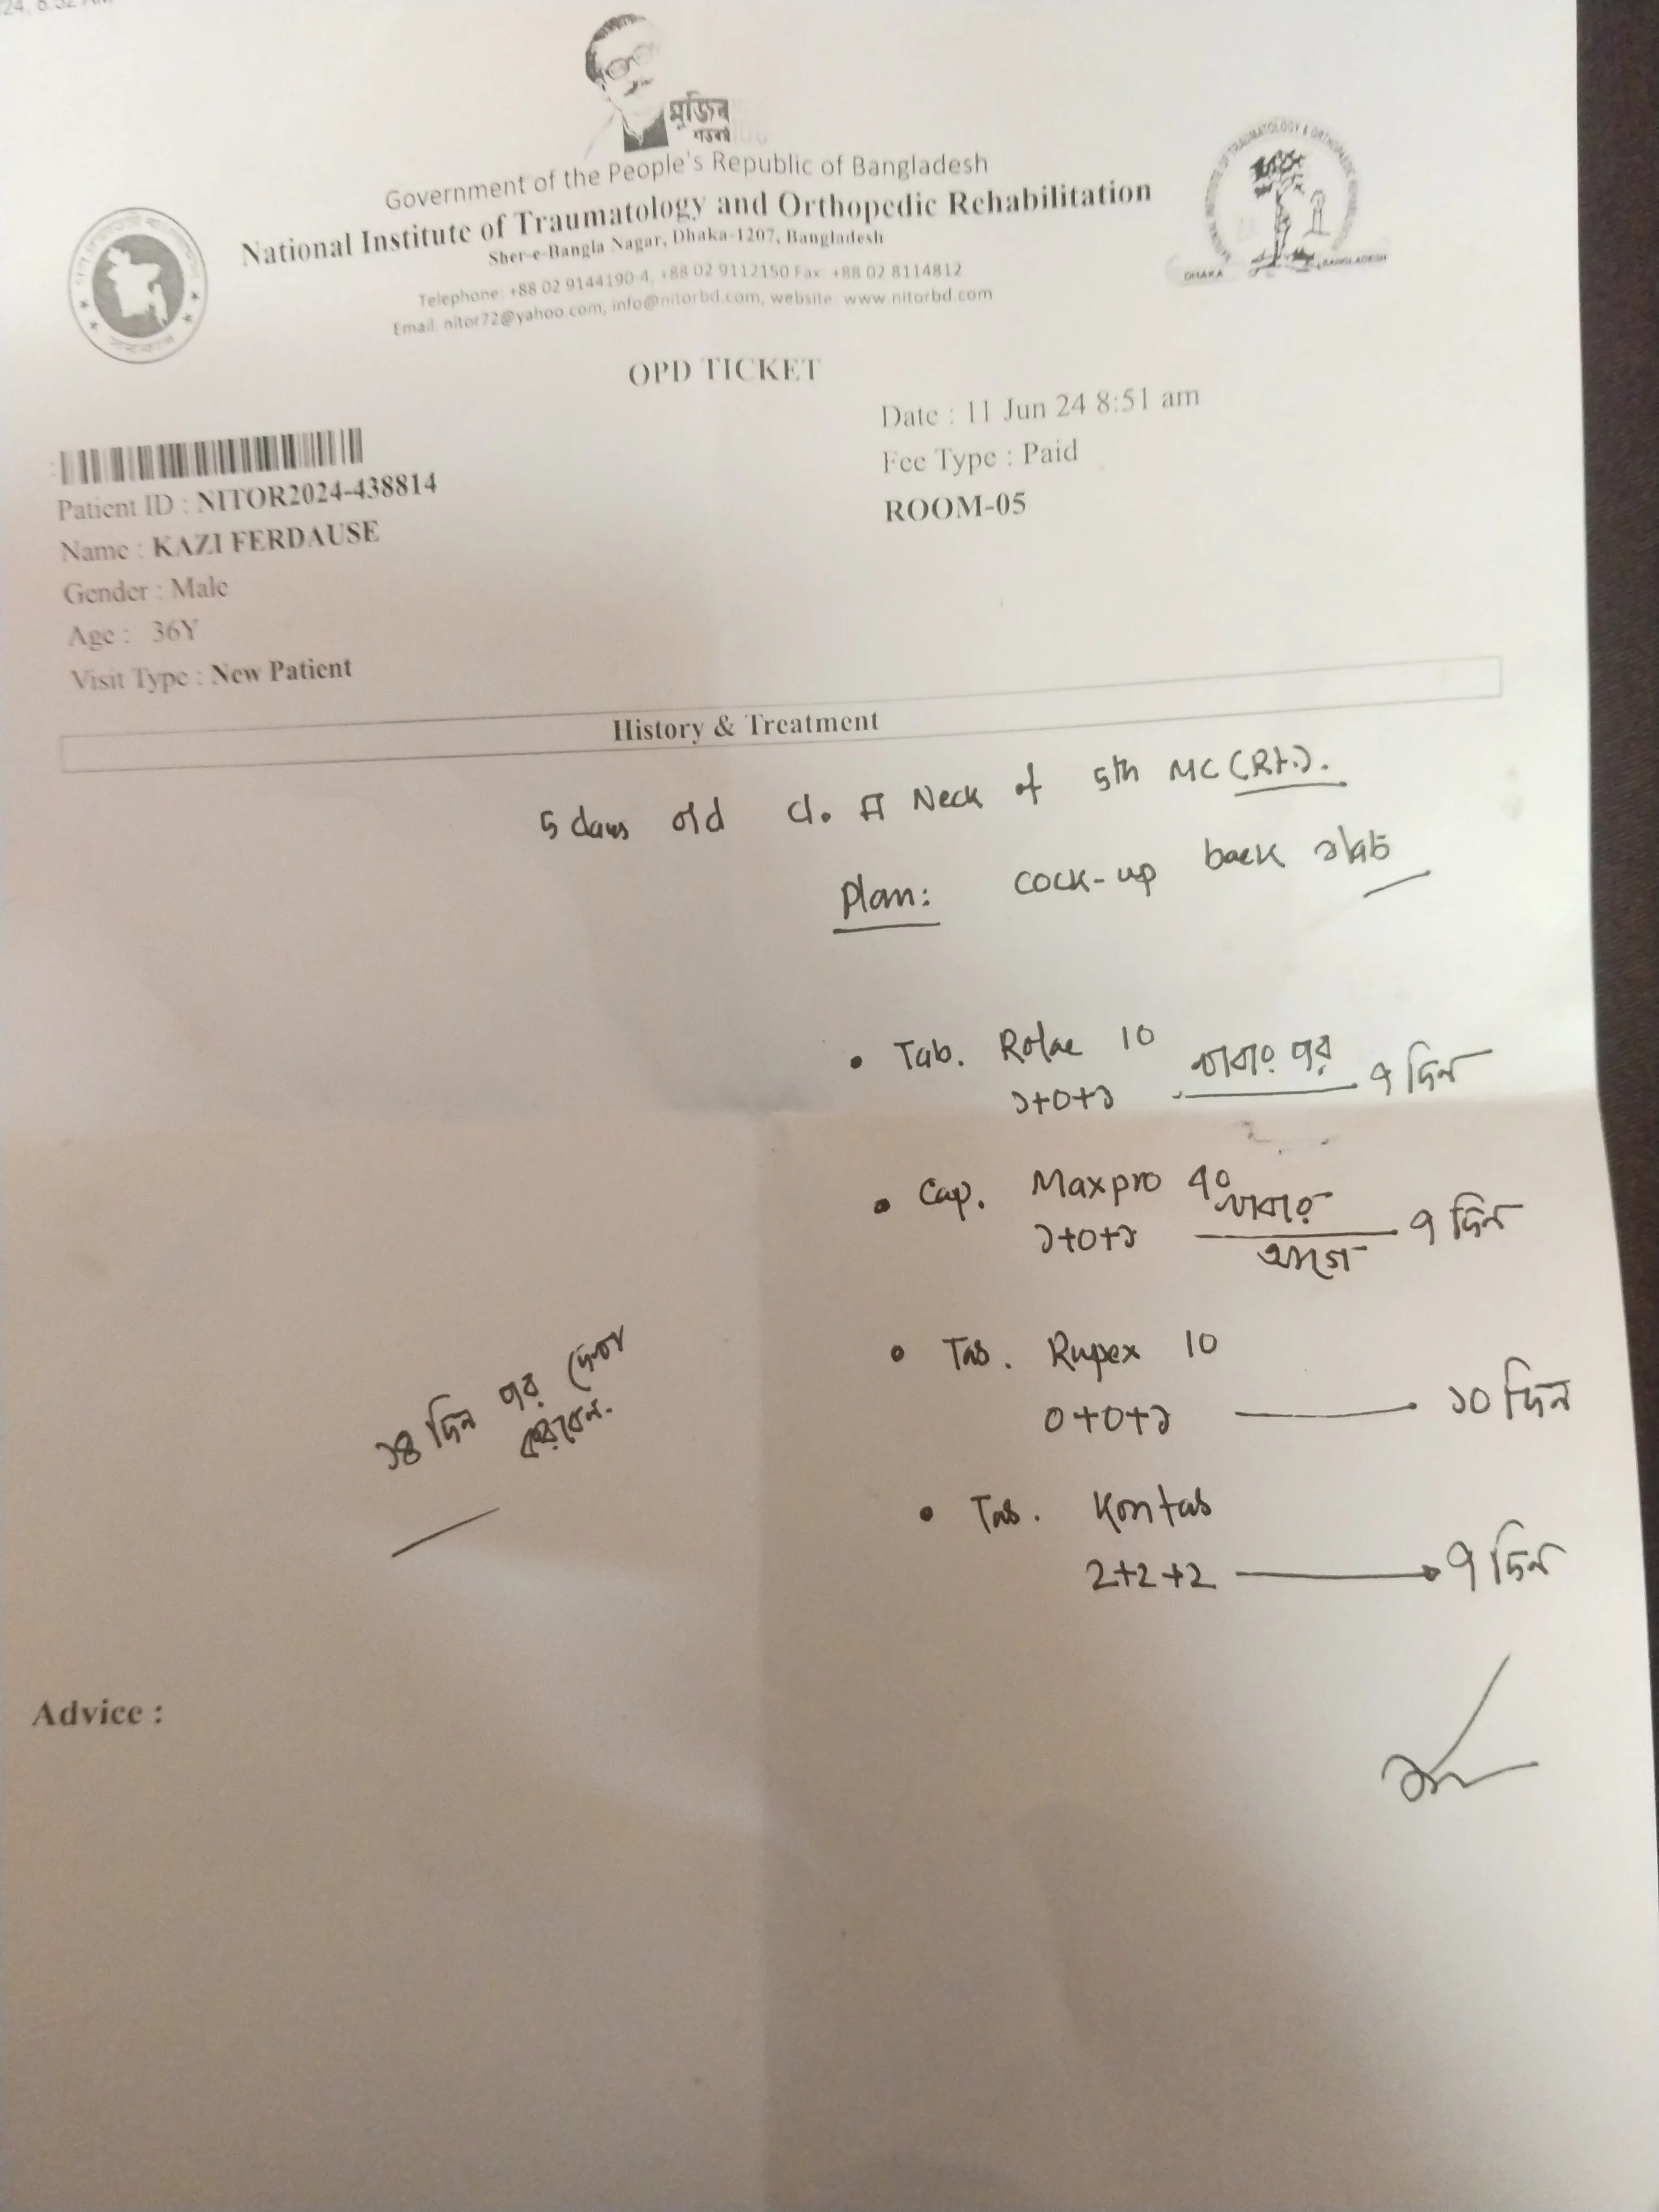 মুজিব
শতবর্ষ
Government of the People's Republic of Bangladesh
National Institute of Traumatology and Orthopedic Rehabilitation
Sher-e-Bangla Nagar, Dhaka-1207, Bangladesh
Telephone: +88 02 9144190-4, +88 02 9112150 Fax: +88 02 8114812
Email: nitor72@yahoo.com, info@nitorbd.com, website: www.nitorbd.com
DHAKA BANGLADESH
OPD TICKET
Date : 11 Jun 24 8:51 am
Fee Type : Paid
ROOM-05
Patient ID : NITOR2024-438814
Name : KAZI FERDAUSE
Gender : Male
Age : 36Y
Visit Type : New Patient
History & Treatment
5 days old cl. # Neck of 5th MC (Rt.).
Plan: cock-up back slab
• Tab. Rolac 10
১+০+১ খাবার পর ৭ দিন
• Cap. Maxpro 40
১+০+১ খাবারের আগে ৭ দিন
• Tab. Rupex 10
০+০+১ ১০ দিন
• Tab. Kontab
2+2+2 ৭ দিন
১৪ দিন পর দেখা
করবেন.
Advice :